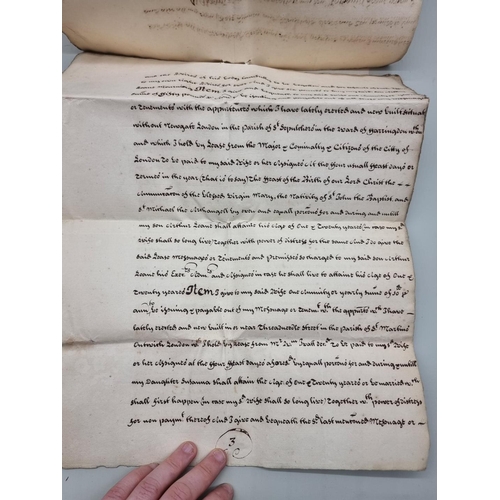 or Tenements with the appurtences which I have lately erected and new built Scituat
without Newgate London in the Parish of St Sepulchers in the Ward of Farringdon wthout
and which I hold by Lease from the Major & Cominalty & Citizens of the City of
London To be paid to my said Wife or her Assignes at the four usuall feast dayes or
Termes in the year (that is to say) The feast of the Birth of our Lord Christ the
Annunciation of the blessed Virgin Mary, the Nativity of St John the Baptist and
St Michaell the Archangell by even and equall porcons for and during and untill
my son Arthur Loane shall attaine his Age of One & Twenty yeares in case my sd
Wife shall so long live Together with power of distress for the same And I do give the
said Lease Messuages or Tenements and premisses so charged to my said son Arthur
Loane his Exrs Adms and Assignes in case he shall live to attaine his Age of One &
Twenty yeares Item I give to my said Wife one Annuity or yearly sume of 30l p
ann be issuing & payable out of my Messuage or Tenemt wth the appurts wch I have
lately erected and new built in or near Threadneedle street in the Parish of St Martins
Outwich London wch I hold by Lease from Mr to be paid to my sd Wife
or her Assignes at the four feast dayes aforesd by equall porcons for and during & untill
my Daughter Susanna shall attain the Age of One & Twenty yeares or be married wch
shall first happen in case my sd Wife shall so long live Together wth power of distress
for non paymt thereof And I give and bequeath the sd last mentioned Messuage or
3